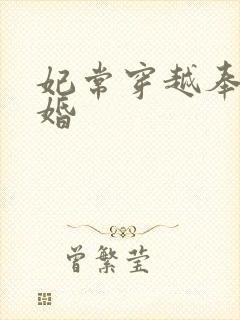 妃常穿越奉
婚
曾繁莹